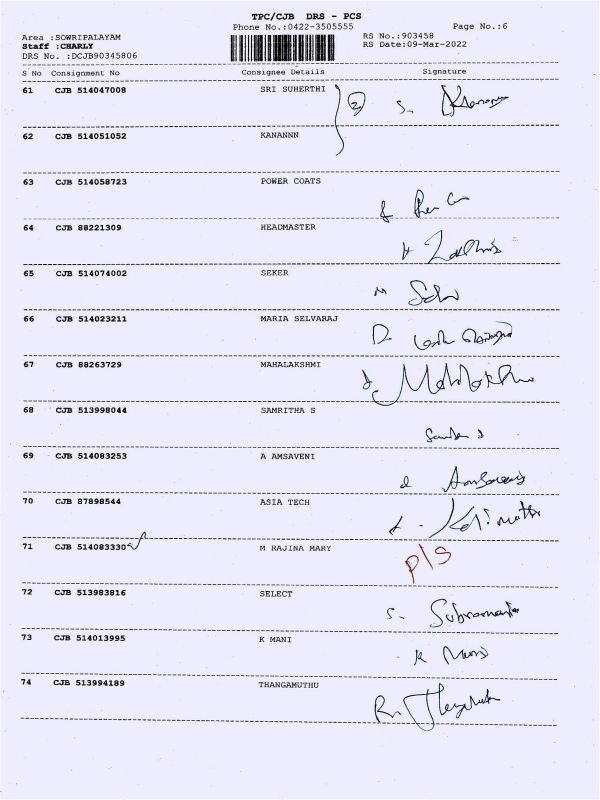 TPC/CJB DRS - PCS
Phone No.:0422-3505555
Page No.:6
Area :SOWRIPALAYAM
RS No.:903458
Staff :CHARLY
RS Date:09-Mar-2022
DRS No. :DCJB90345806
S No Consignment No Consignee Details Signature
61 CJB 514047008 SRI SUHERTHI 2 S.
62 CJB 514051052 KANANNN
63 CJB 514058723 POWER COATS
64 CJB 88221309 HEADMASTER
65 CJB 514074002 SEKER
66 CJB 514023211 MARIA SELVARAJ
67 CJB 88263729 MAHALAKSHMI
68 CJB 513998044 SAMRITHA S
69 CJB 514083253 A AMSAVENI
70 CJB 87898544 ASIA TECH
71 CJB 514083330 M RAJINA MARY P/S
72 CJB 513983816 SELECT S.
73 CJB 514013995 K MANI K Mani
74 CJB 513994189 THANGAMUTHU